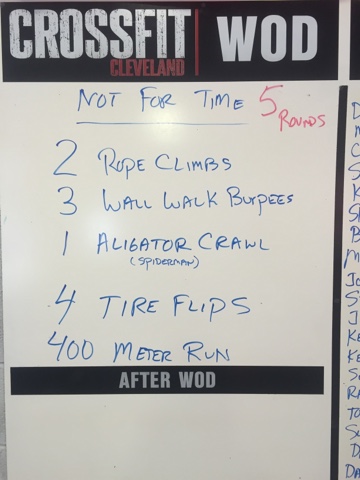 CROSSFIT
CLEVELAND
WOD
NOT FOR TIME 5 ROUNDS
2 ROPE CLIMBS
3 WALL WALK BURPEES
1 ALIGATOR CRAWL
(SPIDERMAN)
4 TIRE FLIPS
400 METER RUN
AFTER WOD